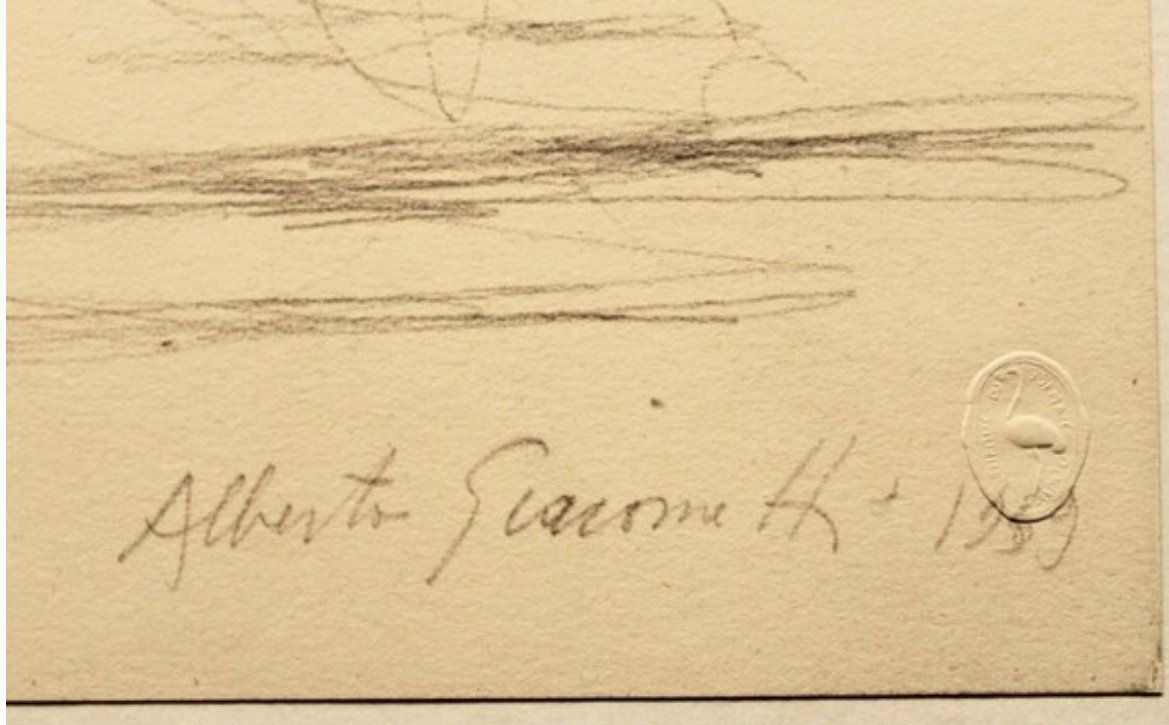 Alberto Giacometti 1959